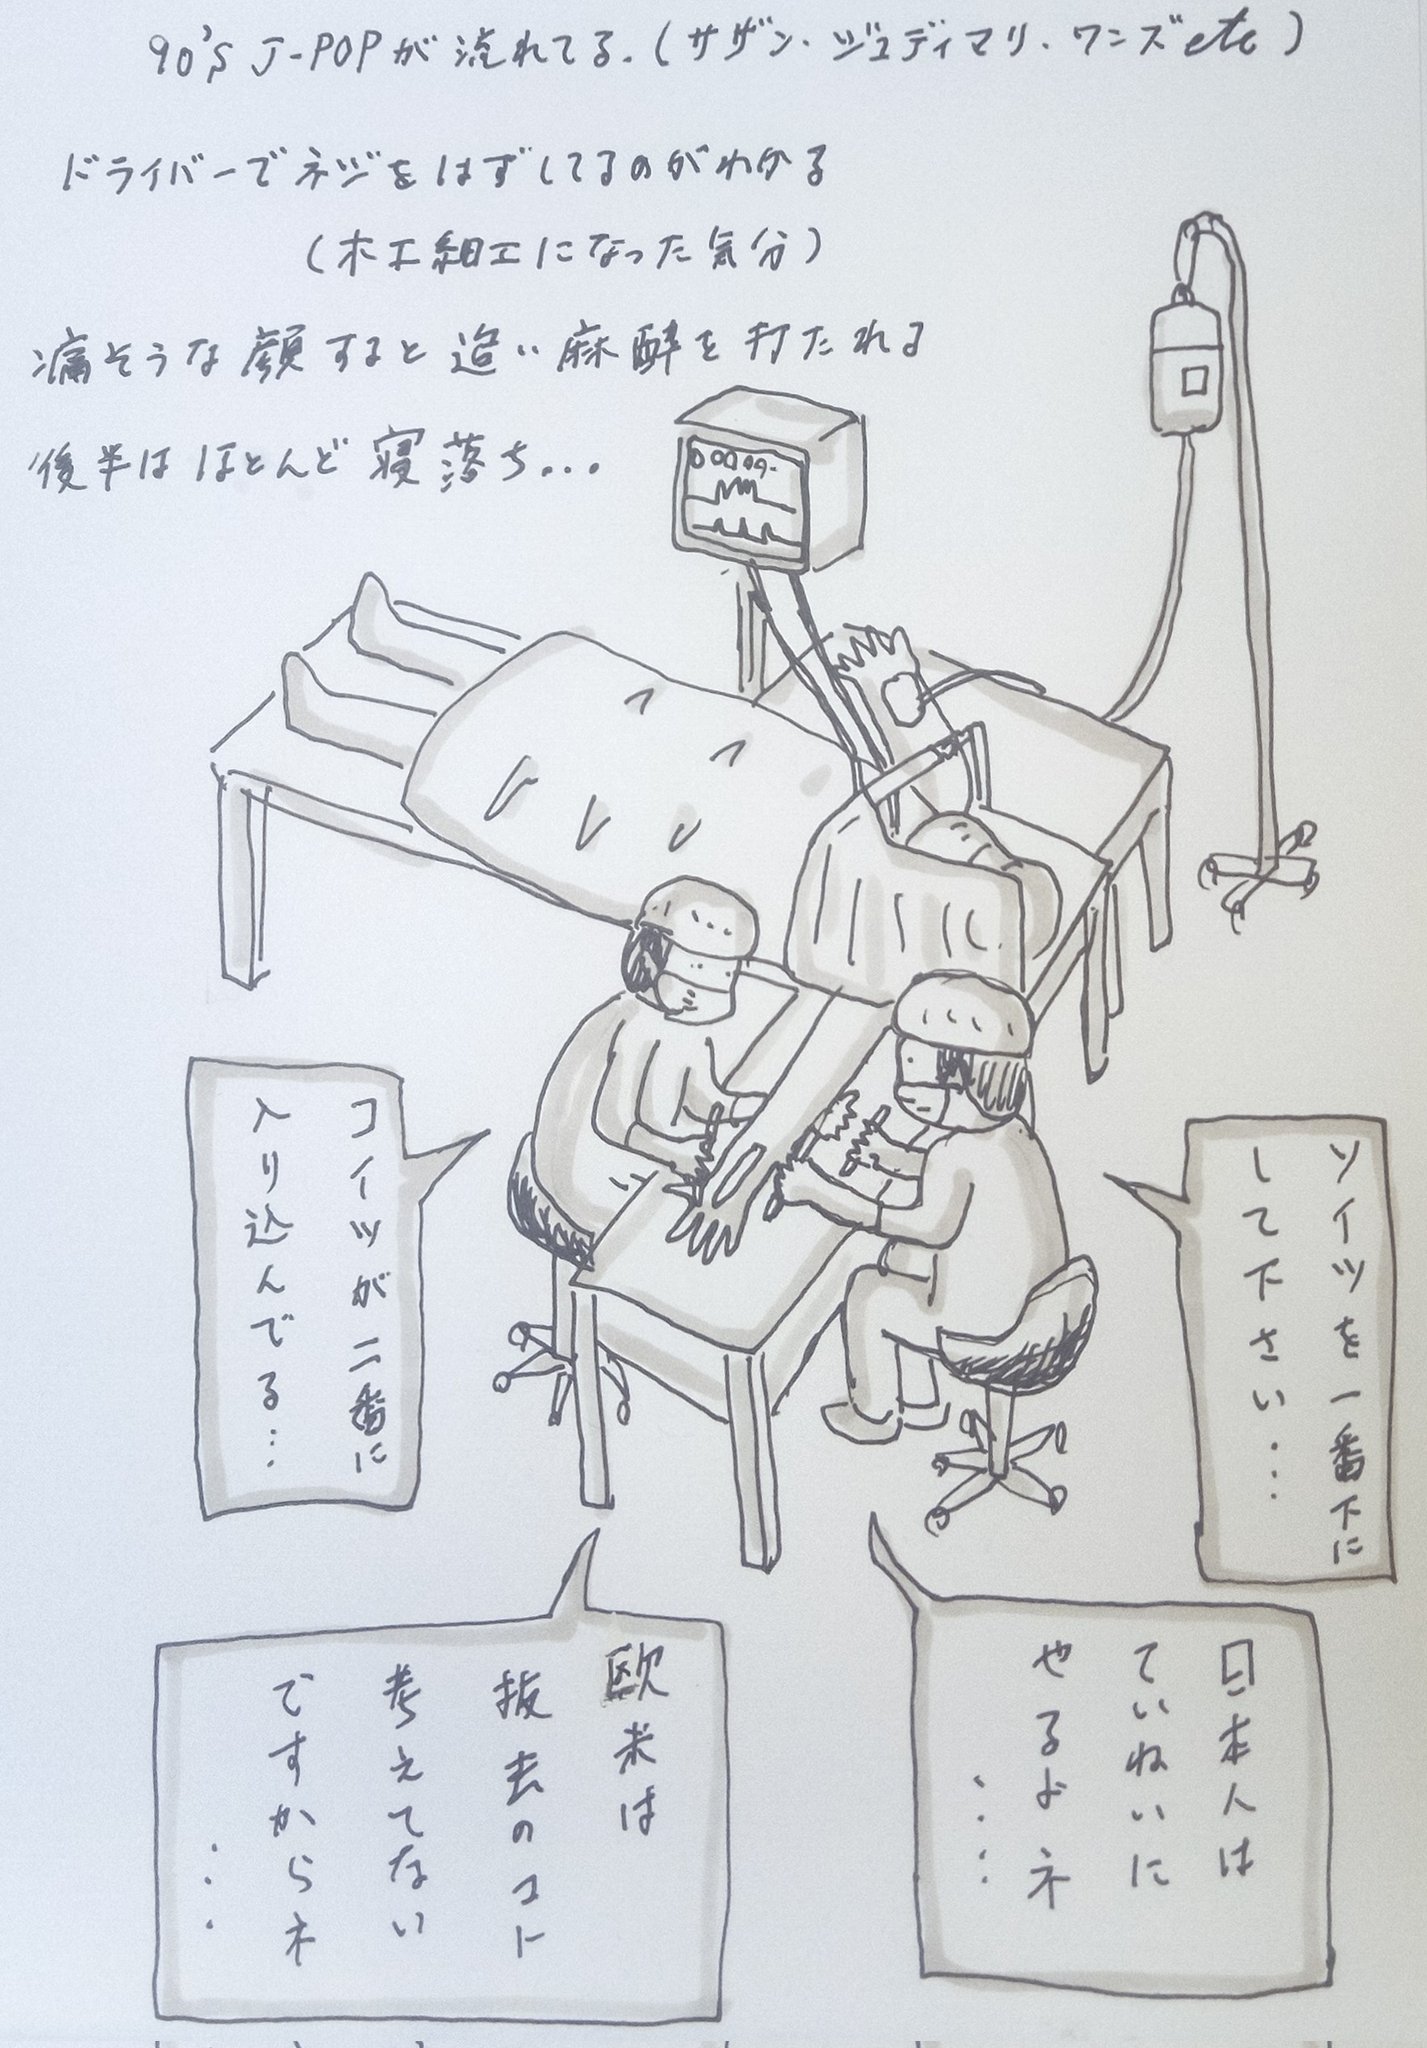 90's J-POPが流れてる.(サザン・ジュディマリ・ワンズetc)
ドライバーでネジをはずしてるのがわかる
(木工細工になった気分)
痛そうな顔すると追い麻酔を打たれる
後半はほとんど寝落ち...
ソイツを一番下に
して下さい...
コイツが二番に
入り込んでる...
日本人は
ていねいに
やるよネ
...
欧米は
抜去のコト
考えてない
ですからネ
...